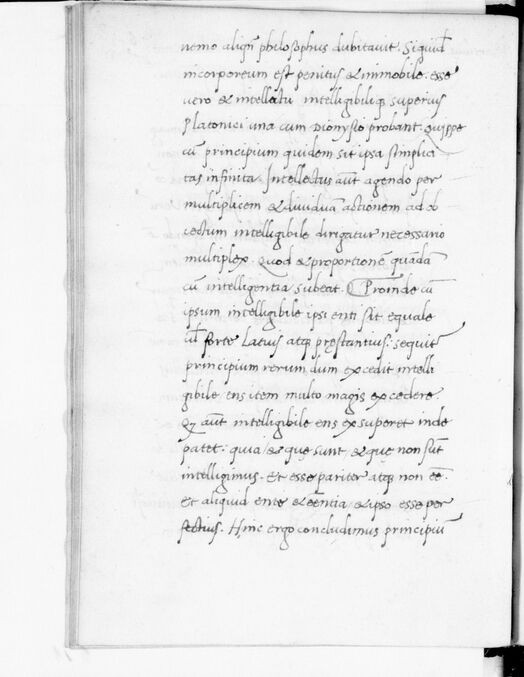 nemo aliqñ philosophus dubitavit. Siquid
incorporeum est penitus & immobile. esse
vero & intellectu intelligibiliq; superius
Platonici una cum Dionysio probant. Quippe
cū principium quidem sit ipsa simplici
tas infinita. Intellectus aūt agendo per
multiplicem & dividuā actionem ad ob
iectum intelligibile dirigatur necessario
multiplex. Quod & proportionē quadā
cū intelligentia subeat. Proinde cū
ipsum intelligibile ipsi enti sit equale
ul̄ forte Latius atq; pręstantius. sequit̄
principium rerum dum excedit intelli
gibile. ens item multo magis excedere.
Qz aūt intelligibile ens exsuperet inde
patet. quia & quę sunt & quę non sūt
intelligimus. Et esse pariter atq; non eē.
Et aliquid ente & eēntia & ipso esse per
fectius. Hinc ergo concludimus principiū